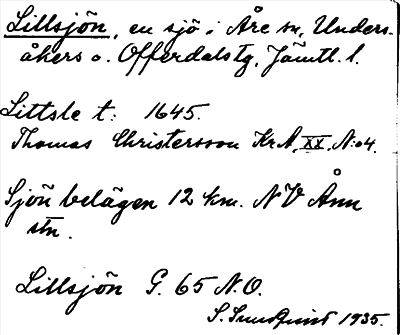 Lillsjön, en sjö i Åre sn, Unders-
åkers o. Offerdals tg, Jämtl. l.
Littsle t: 1645.
Thomas Christersson KrA, XX, N:o 4.
Sjön belägen 12 km. NV Ånn
stn.
Lillsjön G. 65 N.O.
S. Sundquist 1935.